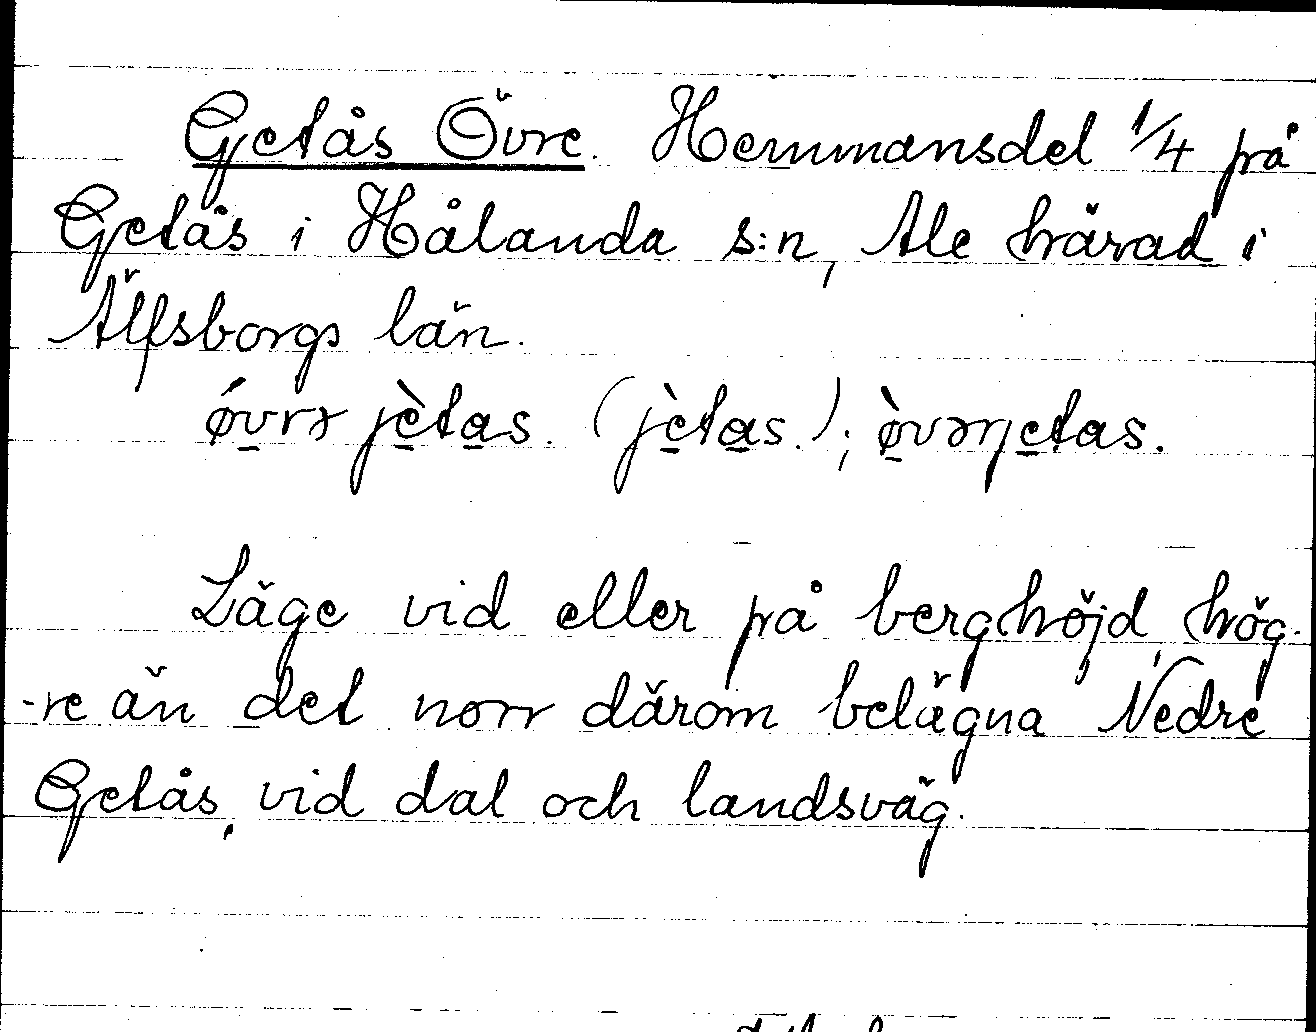 Getås Övre. Hemmansdel 1/4 på
Getås i Hålanda s:n, Ale härad i
Älfsborgs län.
ǿvrə jètas. (jètas.); ø̀vərjetas.
Läge vid eller på berghöjd, hög-
-re än det norr därom belägna Nedre
Getås, vid dal och landsväg.